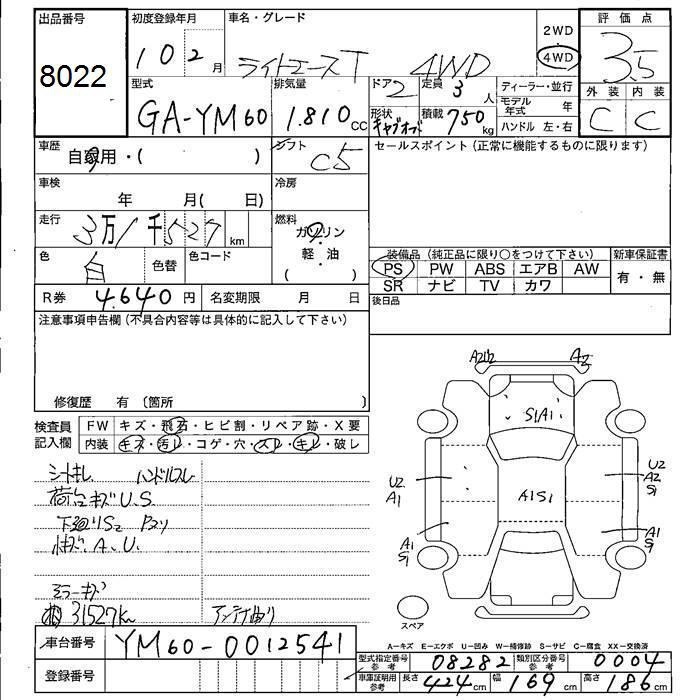 出品番号 初度登録年月 車名・グレード 2WD 評価点
8022 10 2月 ライトエースT 4WD 4WD 3.5
型式 排気量 ドア 定員 ディーラー・並行 外装 内装
GA-YM60 1.810cc 2 3人 モデル年式 年 C C
形状 キャブオーバ 積載 750kg ハンドル 左・右
車歴 自家用・( ) シフト C5 セールスポイント (正常に機能するものに限ります)
車検 年 月( 日) 冷房
走行 3万1千527km 燃料 ガソリン・軽・油 ( )
色 白 色替 色コード 装備品 (純正品に限り○をつけて下さい) 新車保証書
PS PW ABS エアB AW 有・無
R券 4.640円 名変期限 月 日 SR ナビ TV カワ
後日品
注意事項申告欄 (不具合内容等は具体的に記入して下さい)
修復歴 有 〔箇所 〕
検査員記入欄 FW キズ・飛石・ヒビ割・リペア跡・X要
内装 キズ・汚レ・コゲ・穴・スレ・キレ・破レ
シートキレ ハンドルスレ
荷台キズU.S
下廻りS2
A.U.
ミラーキズ
31527km アンテナ曲り
A2 S1A1
U2 A1 A1S1 U2 A2 S1
A1 S1 A1 S1
スペア
A-キズ E-エクボ U-凹み W-補修跡 S-サビ C-腐食 XX-交換済
車台番号 YM60-0012541
型式指定番号参考 08282 類別区分番号参考 0004
登録番号 車庫証明用参考 長さ 424cm 幅 169cm 高さ 186cm